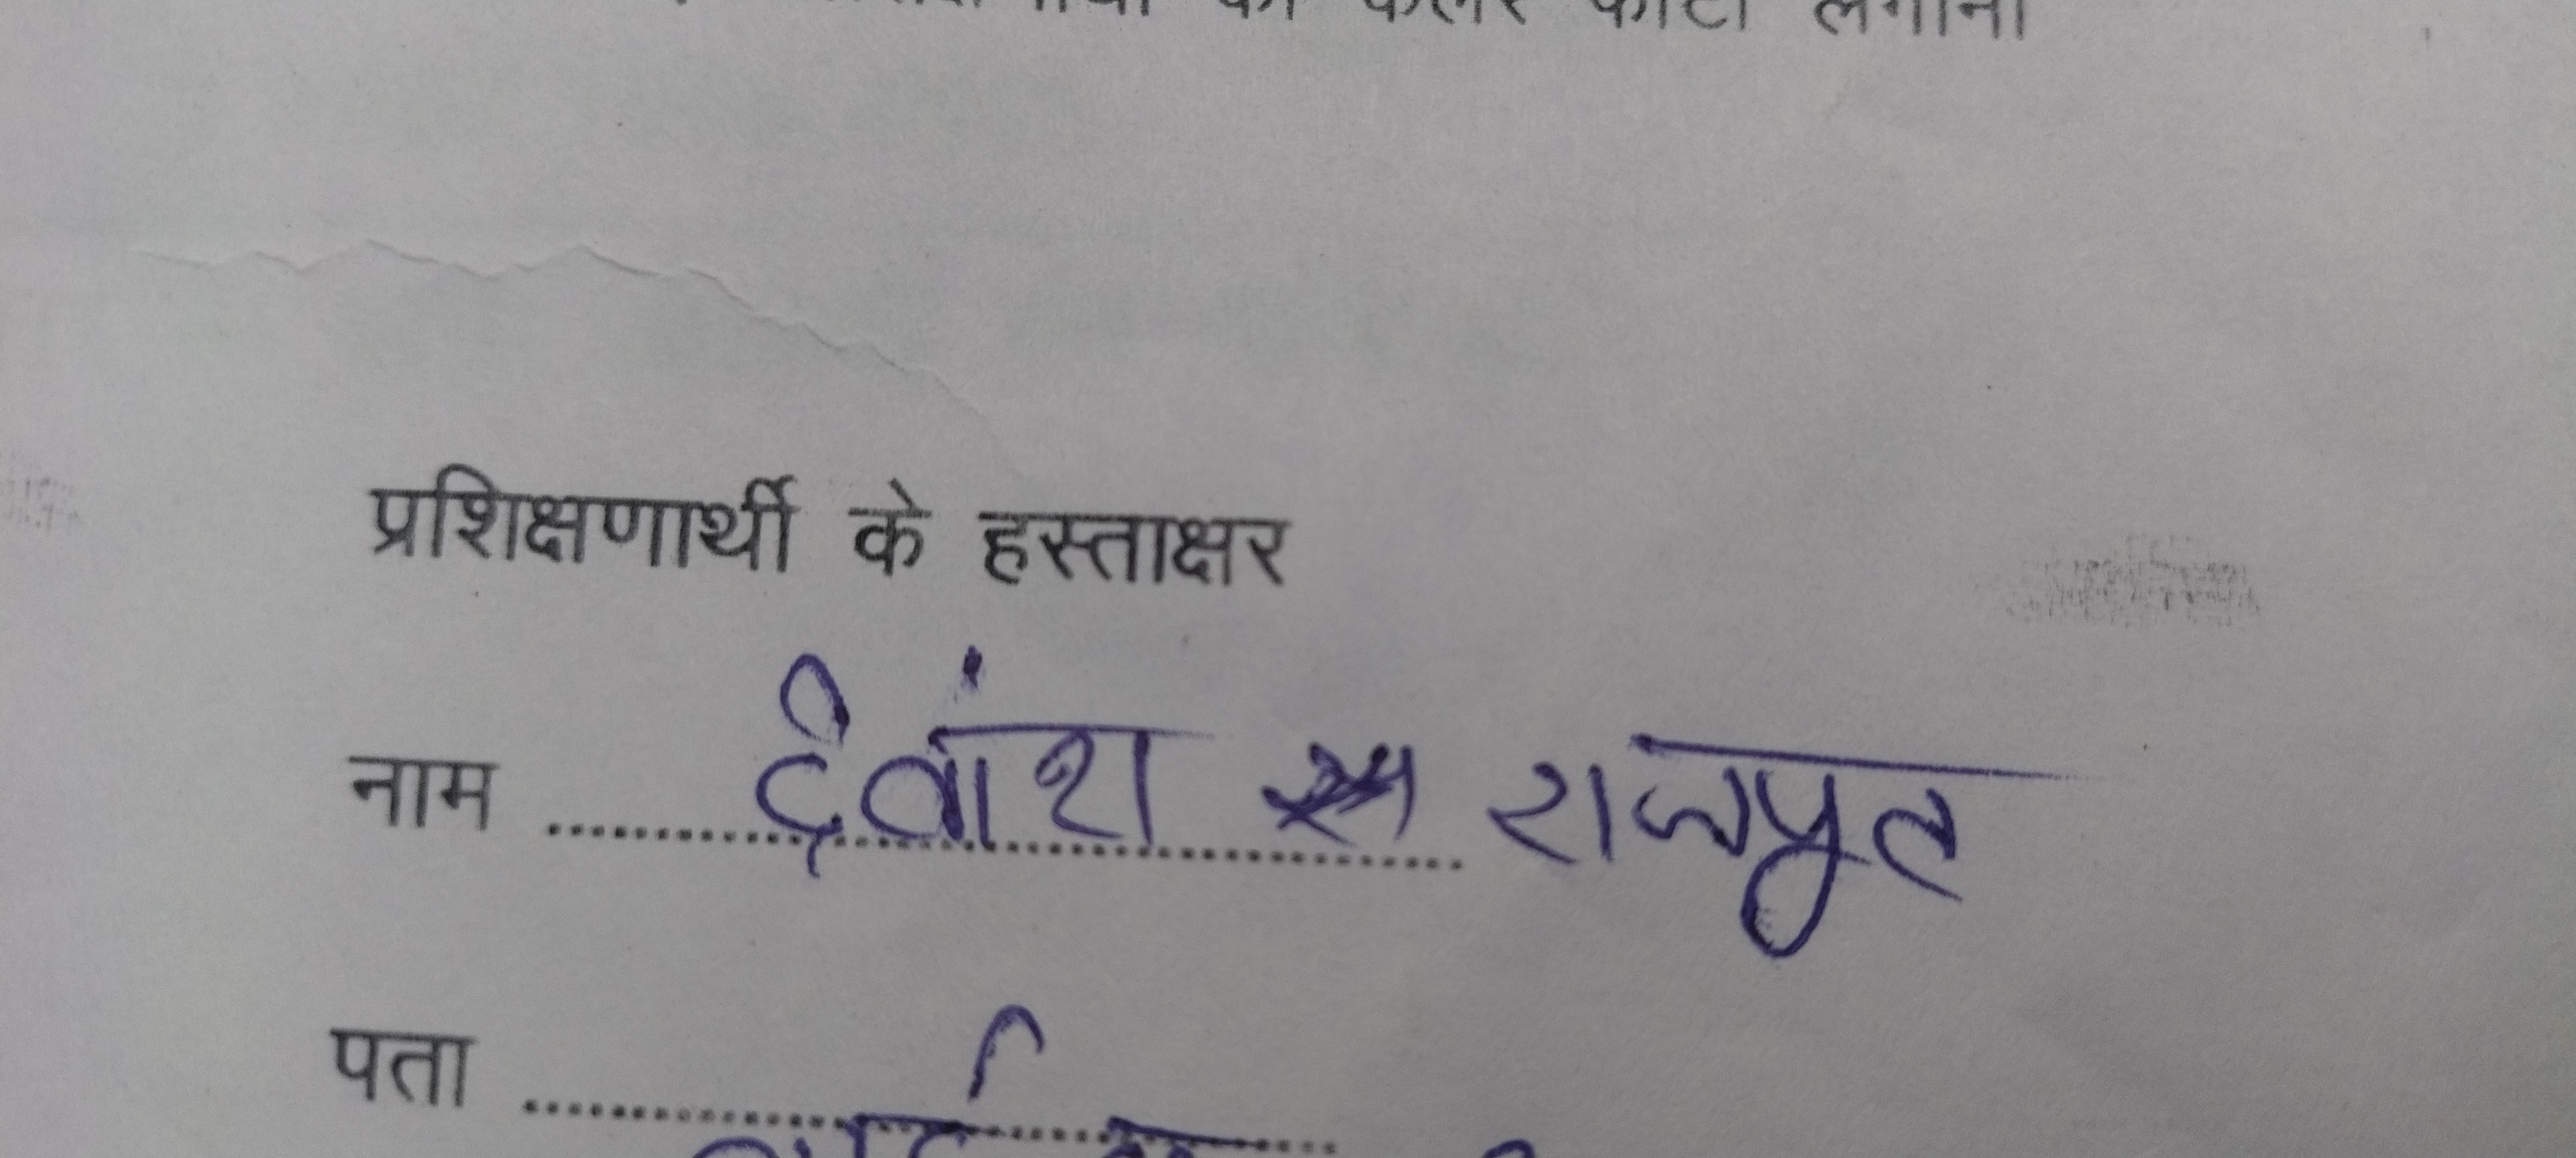 को कलर फोटो लगाना
प्रशिक्षणार्थी के हस्ताक्षर
नाम देवांश राजपूत
पता